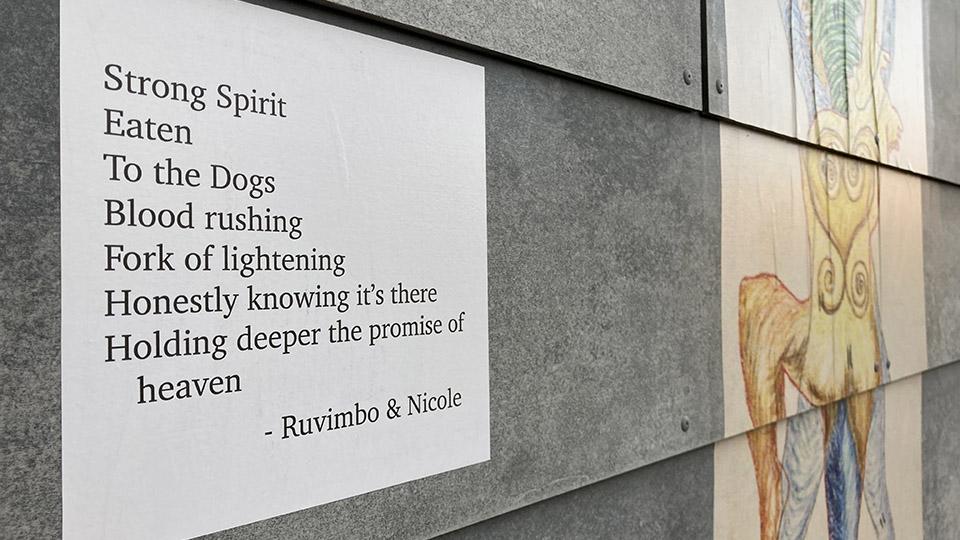 Strong Spirit
Eaten
To the Dogs
Blood rushing
Fork of lightening
Honestly knowing it’s there
Holding deeper the promise of
heaven
- Ruvimbo & Nicole